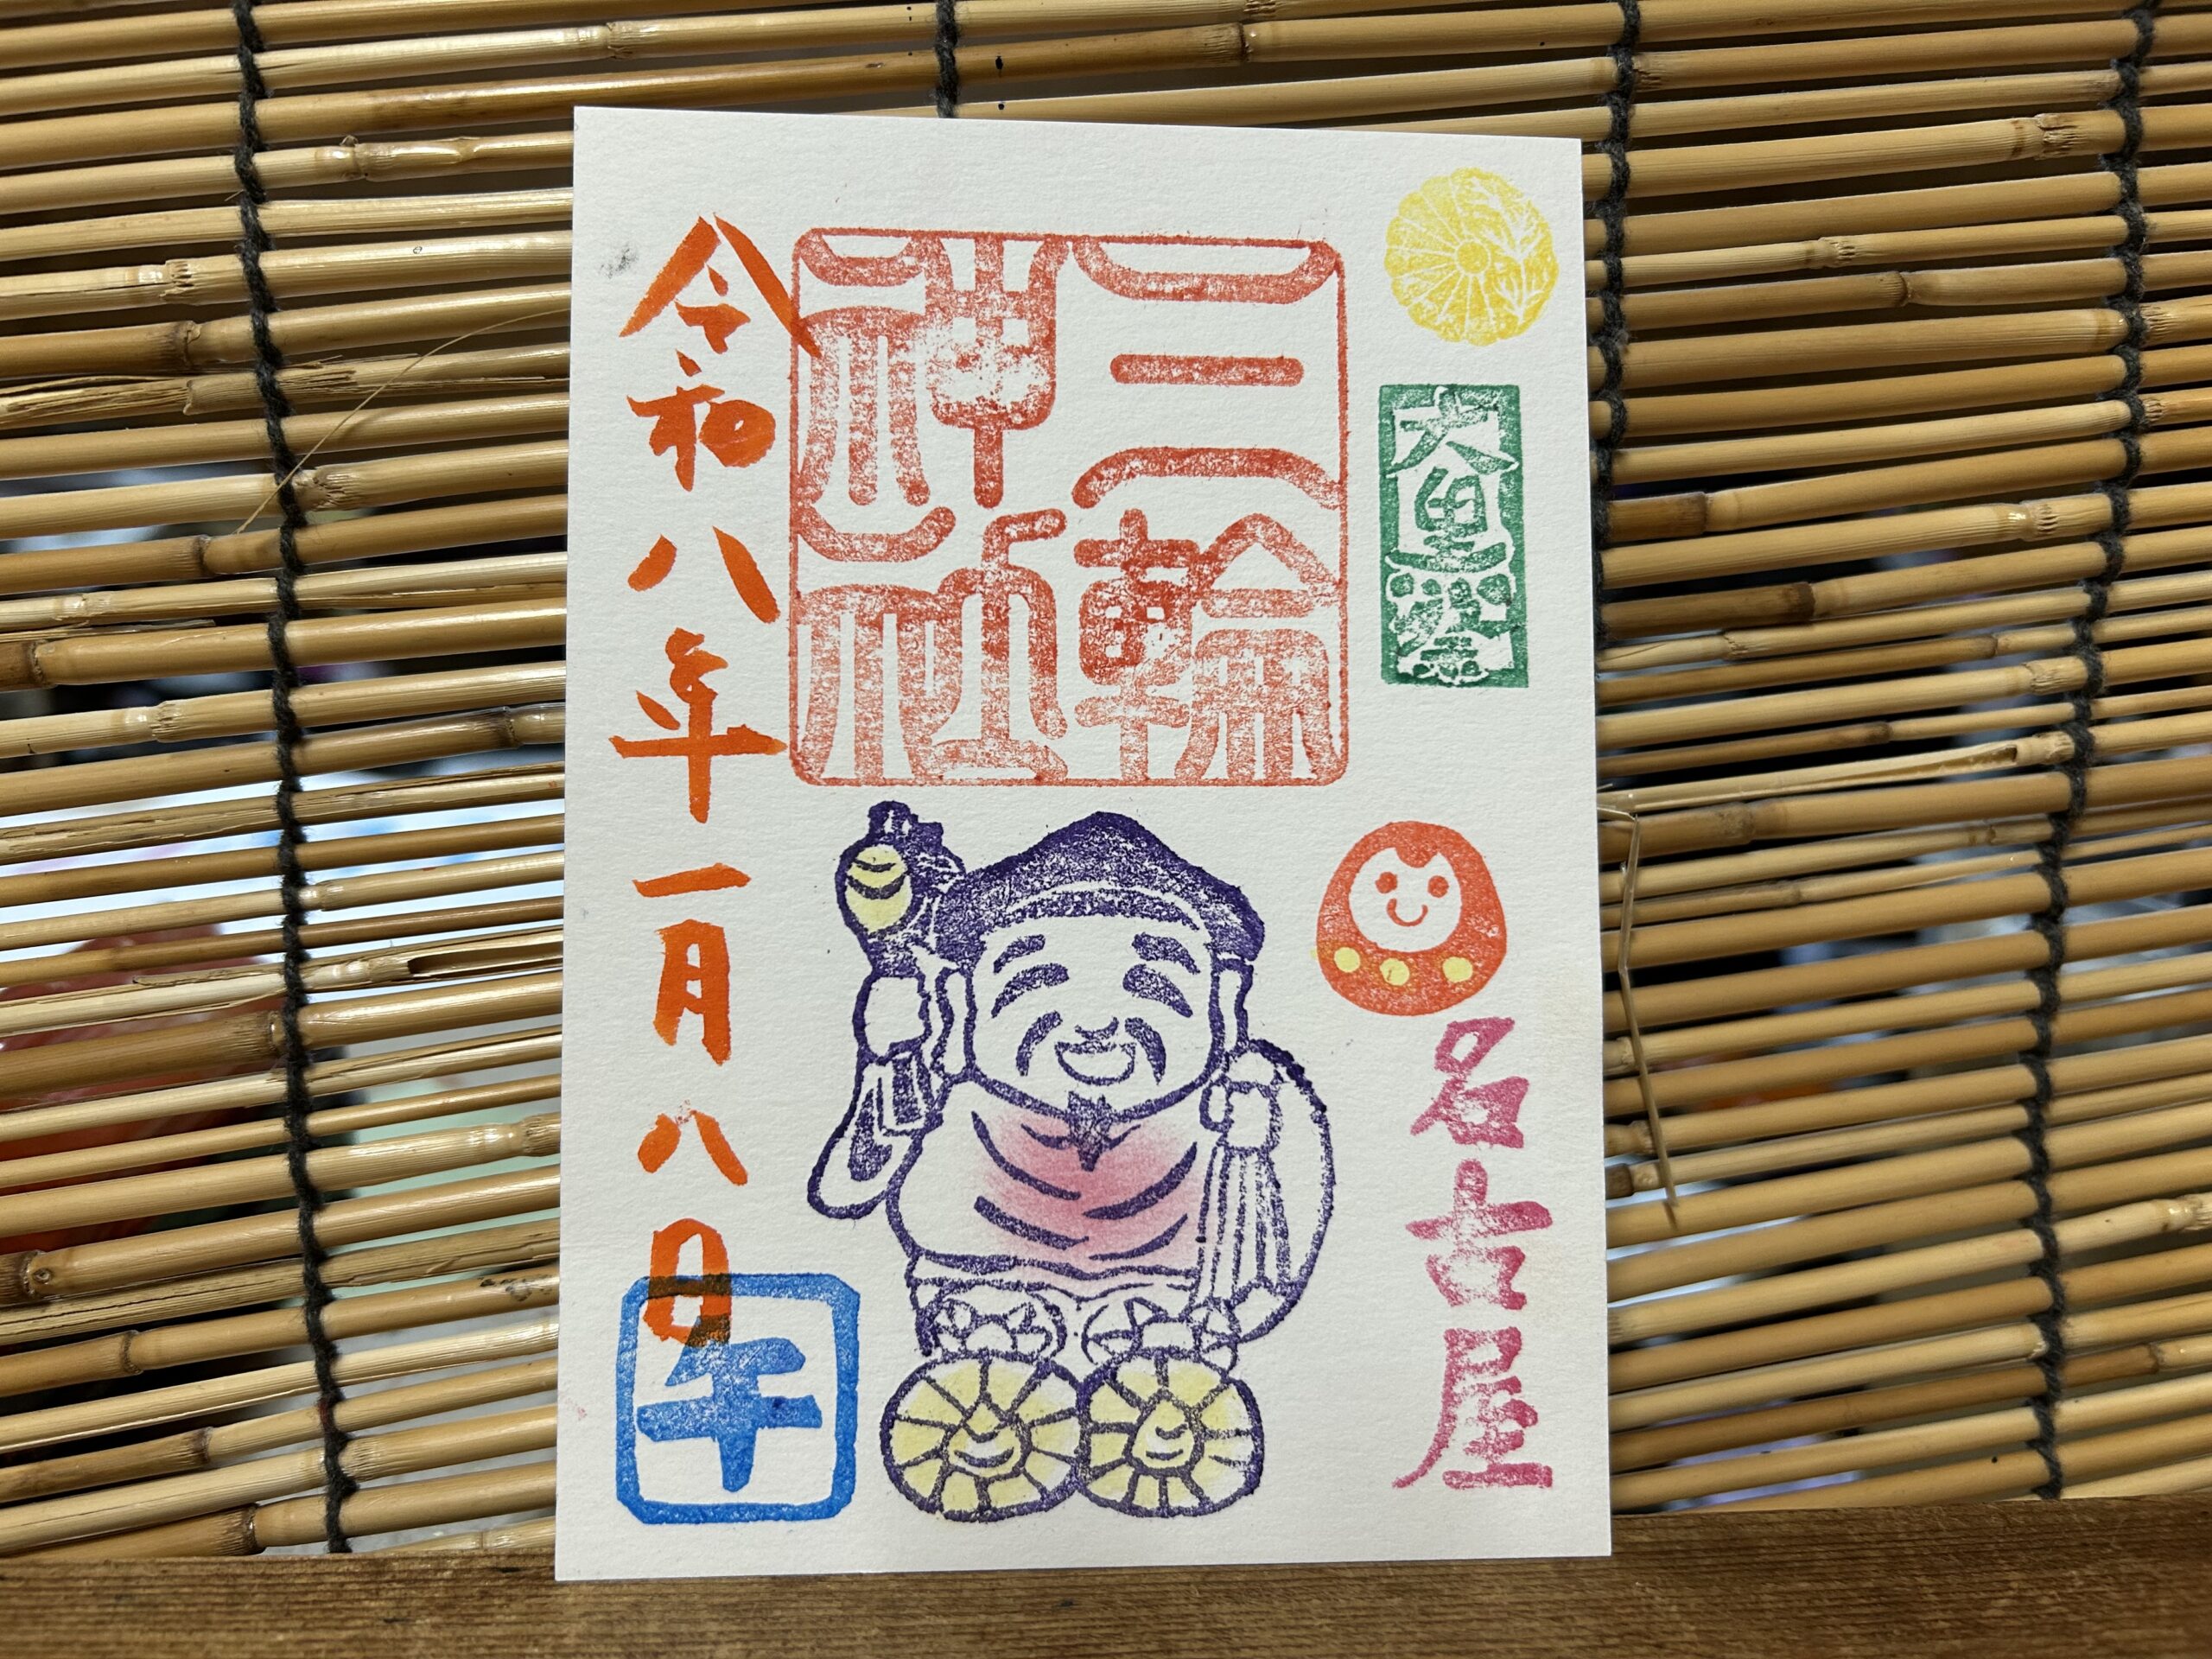 大黒
名古屋
三輪
神社
令和八年一月八日
午